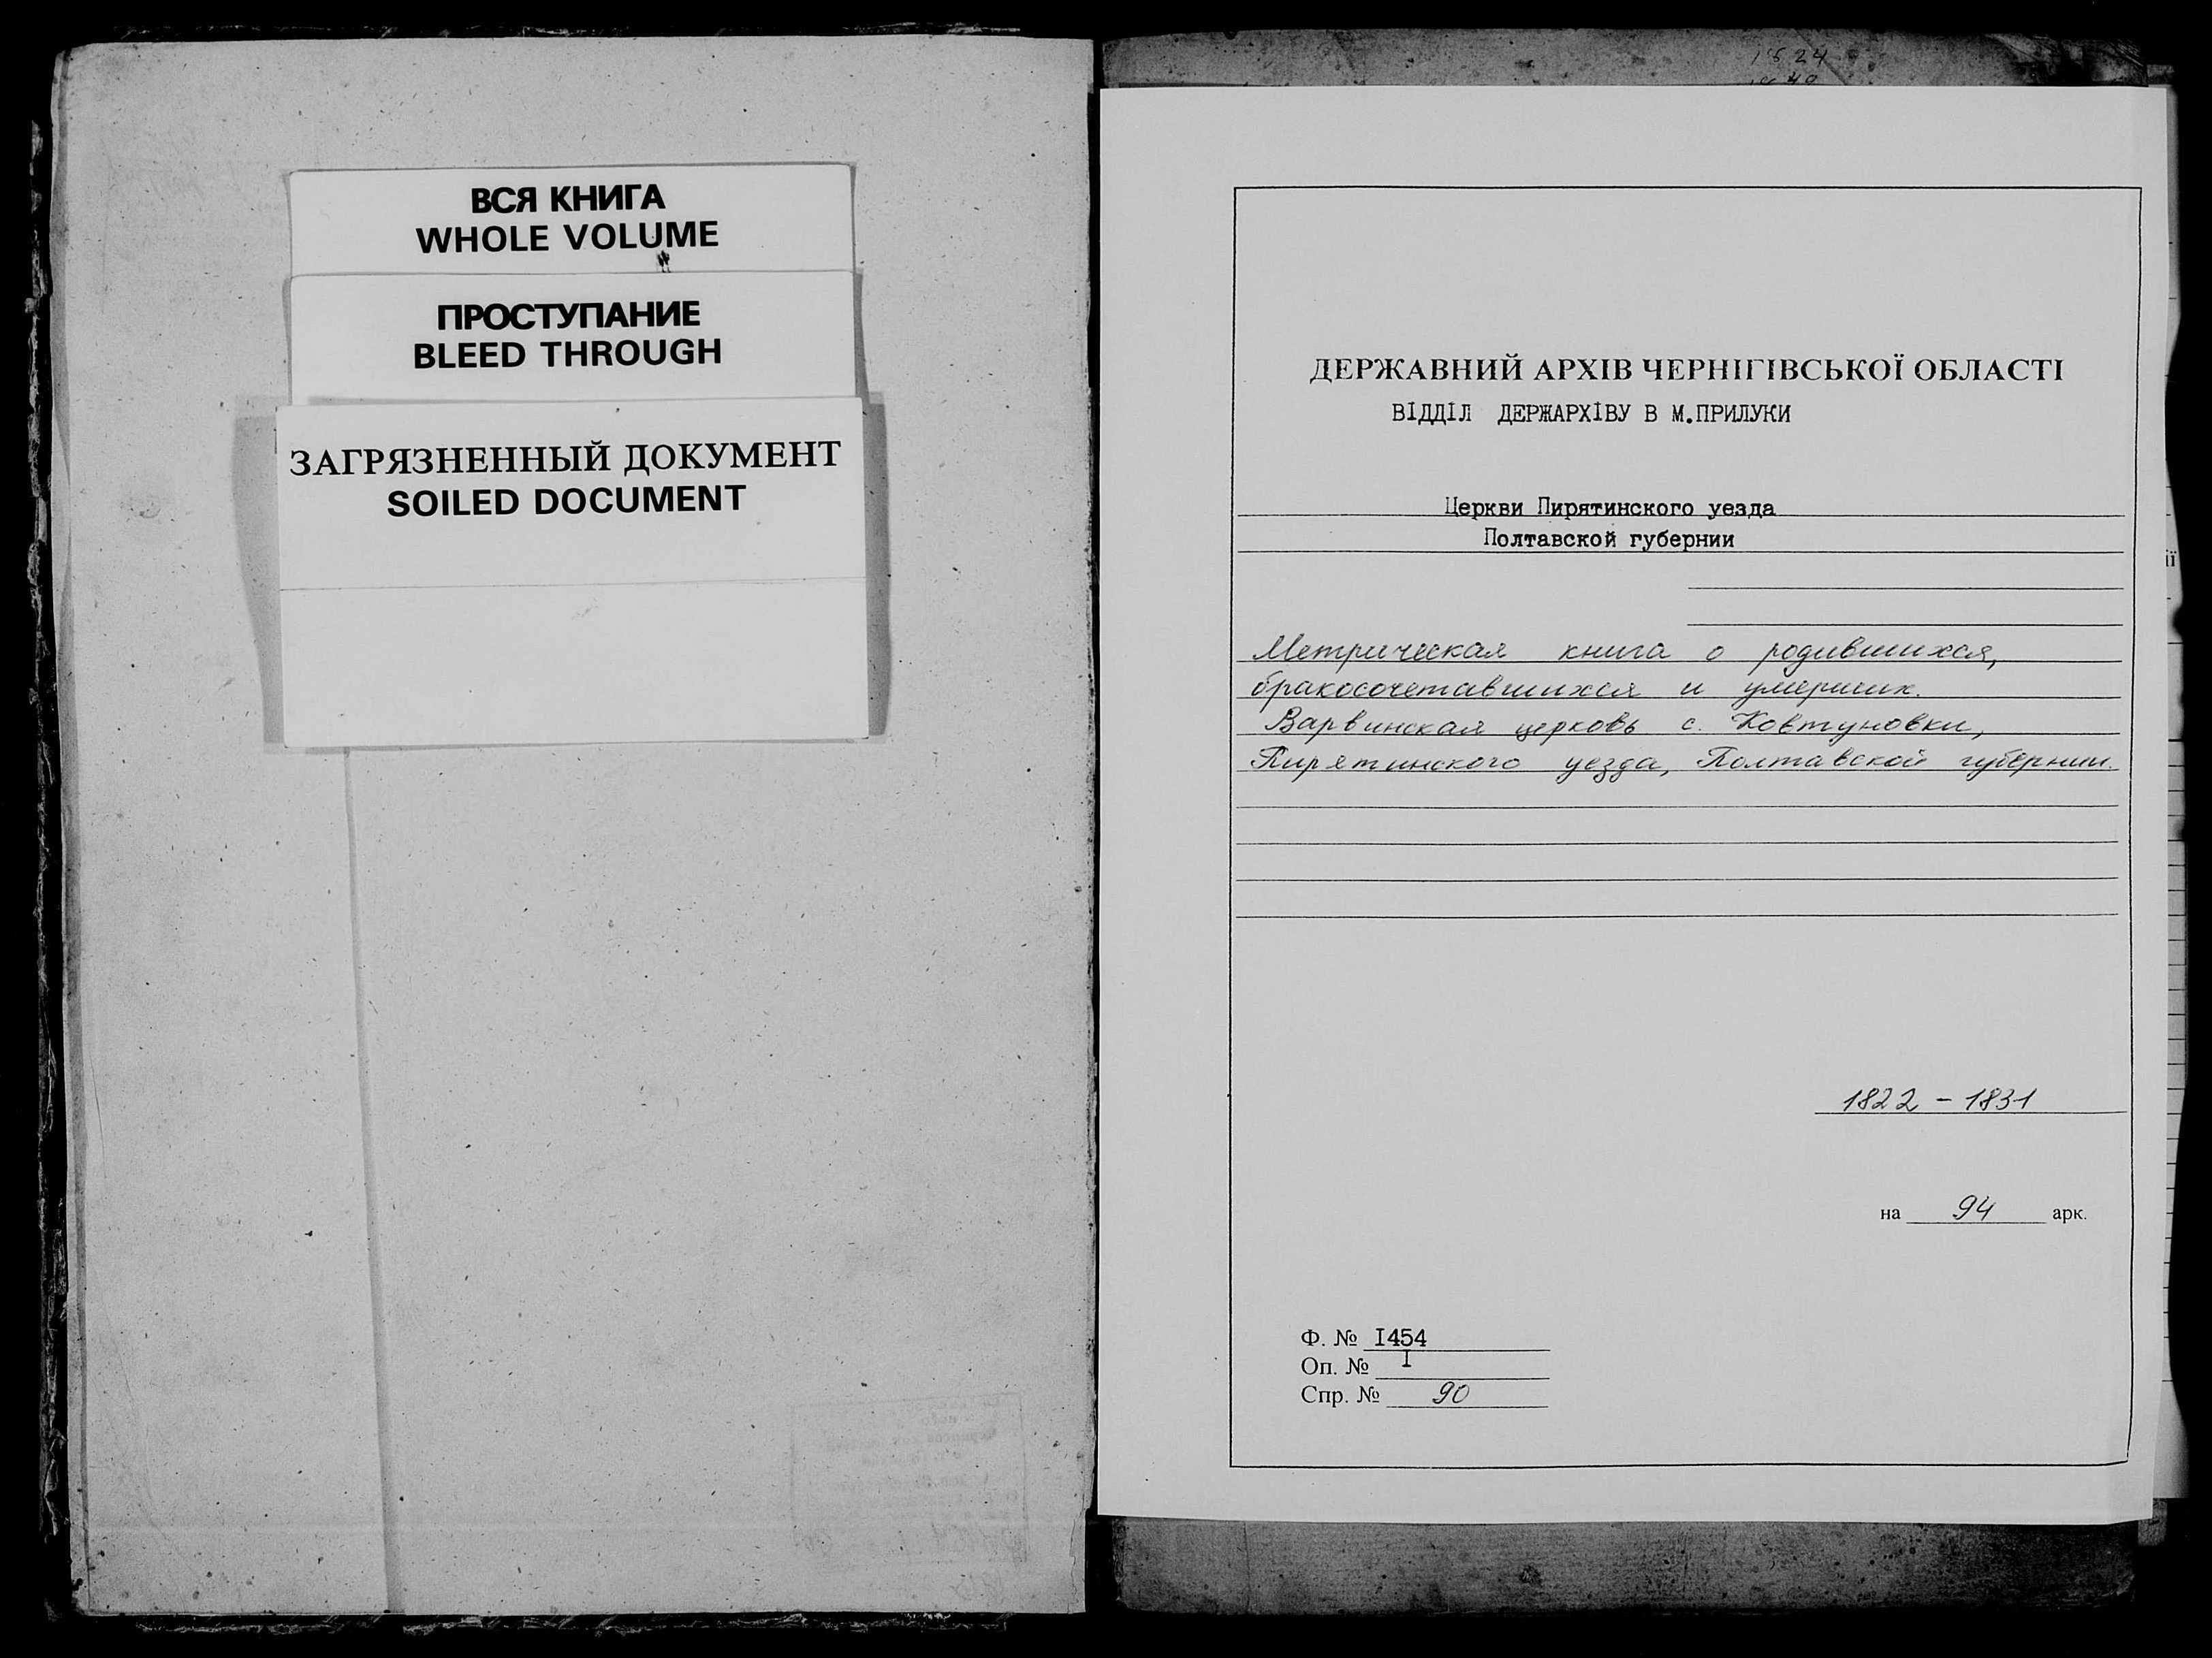 ВСЯ КНИГА
WHOLE VOLUME
ПРОСТУПАНИЕ
BLEED THROUGH
ЗАГРЯЗНЕННЫЙ ДОКУМЕНТ
SOILED DOCUMENT
1824
1840
ДЕРЖАВНИЙ АРХІВ ЧЕРНІГІВСЬКОЇ ОБЛАСТІ
ВІДДІЛ ДЕРЖАРХІВУ В М.ПРИЛУКИ
Церкви Пирятинского уезда
Полтавской губернии
Метрическая книга о родившихся,
бракосочетавшихся и умерших.
Варвинская церковь с. Ковтуновки,
Пирятинского уезда, Полтавской губернии.
1822 - 1831
на 94 арк.
Ф. № I454
Оп. № I
Спр. № 90